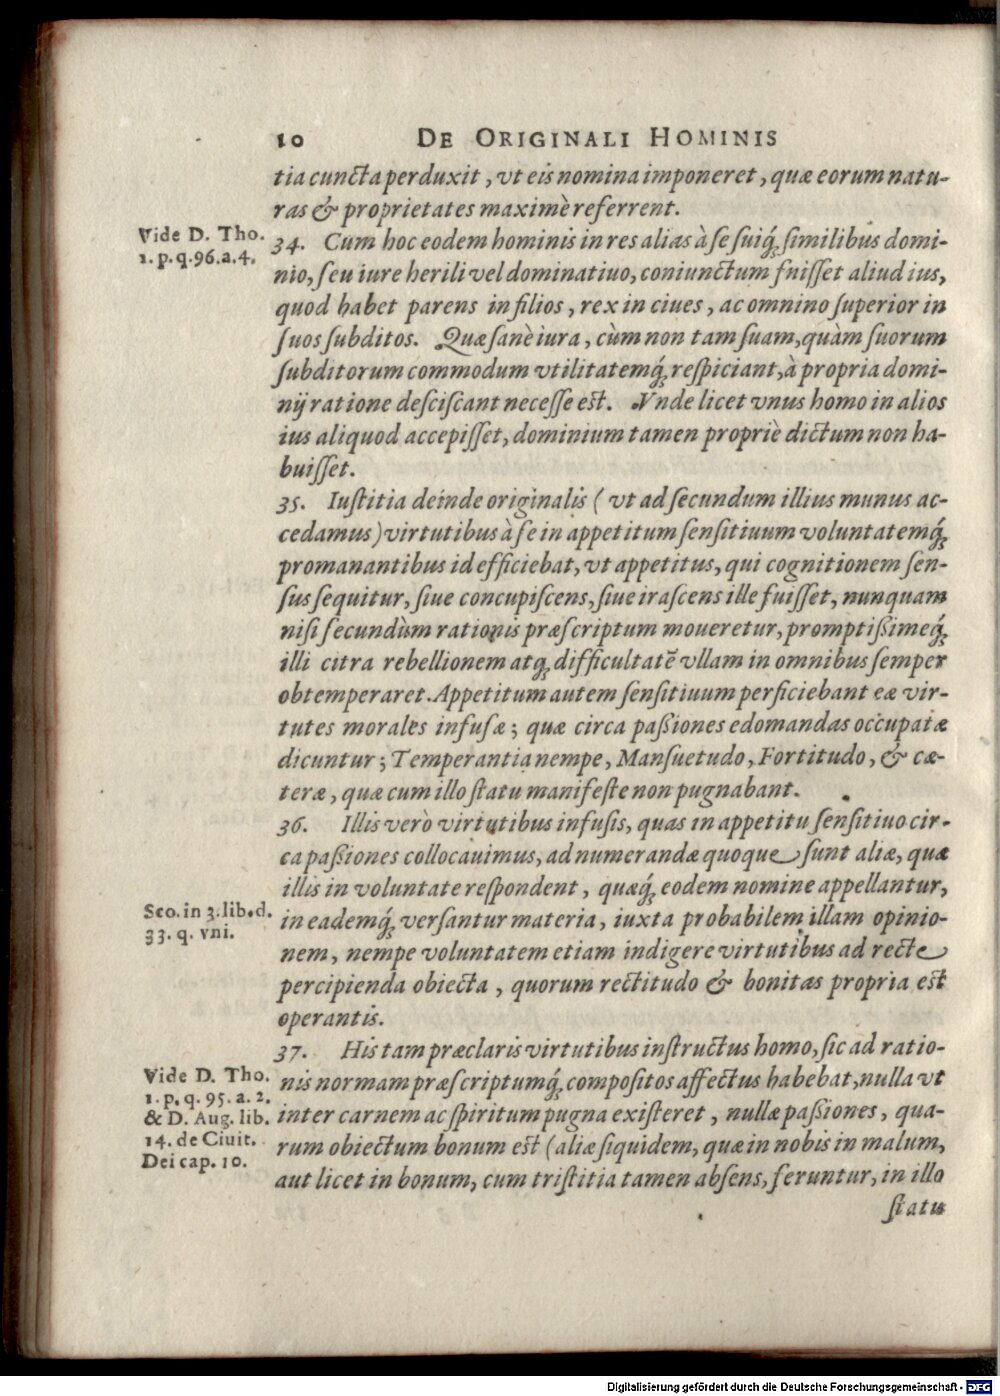 10 DE ORIGINALI HOMINIS
tia cuncta perduxit, vt eis nomina imponeret, quæ eorum natu-
ras & proprietates maximè referrent.
Vide D. Tho.
1. p. q. 96. a. 4.
34. Cum hoc eodem hominis in res alias à se suiq́; similibus domi-
nio, seu iure herili vel dominatiuo, coniunctum fuisset aliud ius,
quod habet parens in filios, rex in ciues, ac omnino superior in
suos subditos. Quæ sanè iura, cùm non tam suam, quàm suorum
subditorum commodum vtilitatemq́; respiciant, à propria domi-
nij ratione desciscant necesse est. Vnde licet vnus homo in alios
ius aliquod accepisset, dominium tamen propriè dictum non ha-
buisset.
35. Iustitia deinde originalis ( vt ad secundum illius munus ac-
cedamus ) virtutibus à se in appetitum sensitiuum voluntatemq́;
promanantibus id efficiebat, vt appetitus, qui cognitionem sen-
sus sequitur, siue concupiscens, siue irascens ille fuisset, nunquam
nisi secundùm rationis præscriptum moueretur, promptißimeq́;
illi citra rebellionem atq; difficultatē vllam in omnibus semper
obtemperaret. Appetitum autem sensitiuum perficiebant eæ vir-
tutes morales infusæ; quæ circa paßiones edomandas occupatæ
dicuntur; Temperantia nempe, Mansuetudo, Fortitudo, & cæ-
teræ, quæ cum illo statu manifeste non pugnabant.
36. Illis verò virtutibus infusis, quas in appetitu sensitiuo cir-
ca paßiones collocauimus, adnumerandæ quoque sunt aliæ, quæ
illis in voluntate respondent, quæq́; eodem nomine appellantur,
Sco. in 3. lib. d.
33. q. vni.
in eademq́; versantur materia, iuxta probabilem illam opinio-
nem, nempe voluntatem etiam indigere virtutibus ad recte
percipienda obiecta, quorum rectitudo & bonitas propria est
operantis.
37. His tam præclaris virtutibus instructus homo, sic ad ratio-
Vide D. Tho.
1. p. q. 95. a. 2.
& D. Aug. lib.
14. de Ciuit.
Dei cap. 10.
nis normam præscriptumq́; compositos affectus habebat, nulla vt
inter carnem ac spiritum pugna existeret, nullæ paßiones, qua-
rum obiectum bonum est (aliæ siquidem, quæ in nobis in malum,
aut licet in bonum, cum tristitia tamen absens, feruntur, in illo
statu
Digitalisierung gefördert durch die Deutsche Forschungsgemeinschaft - DFG